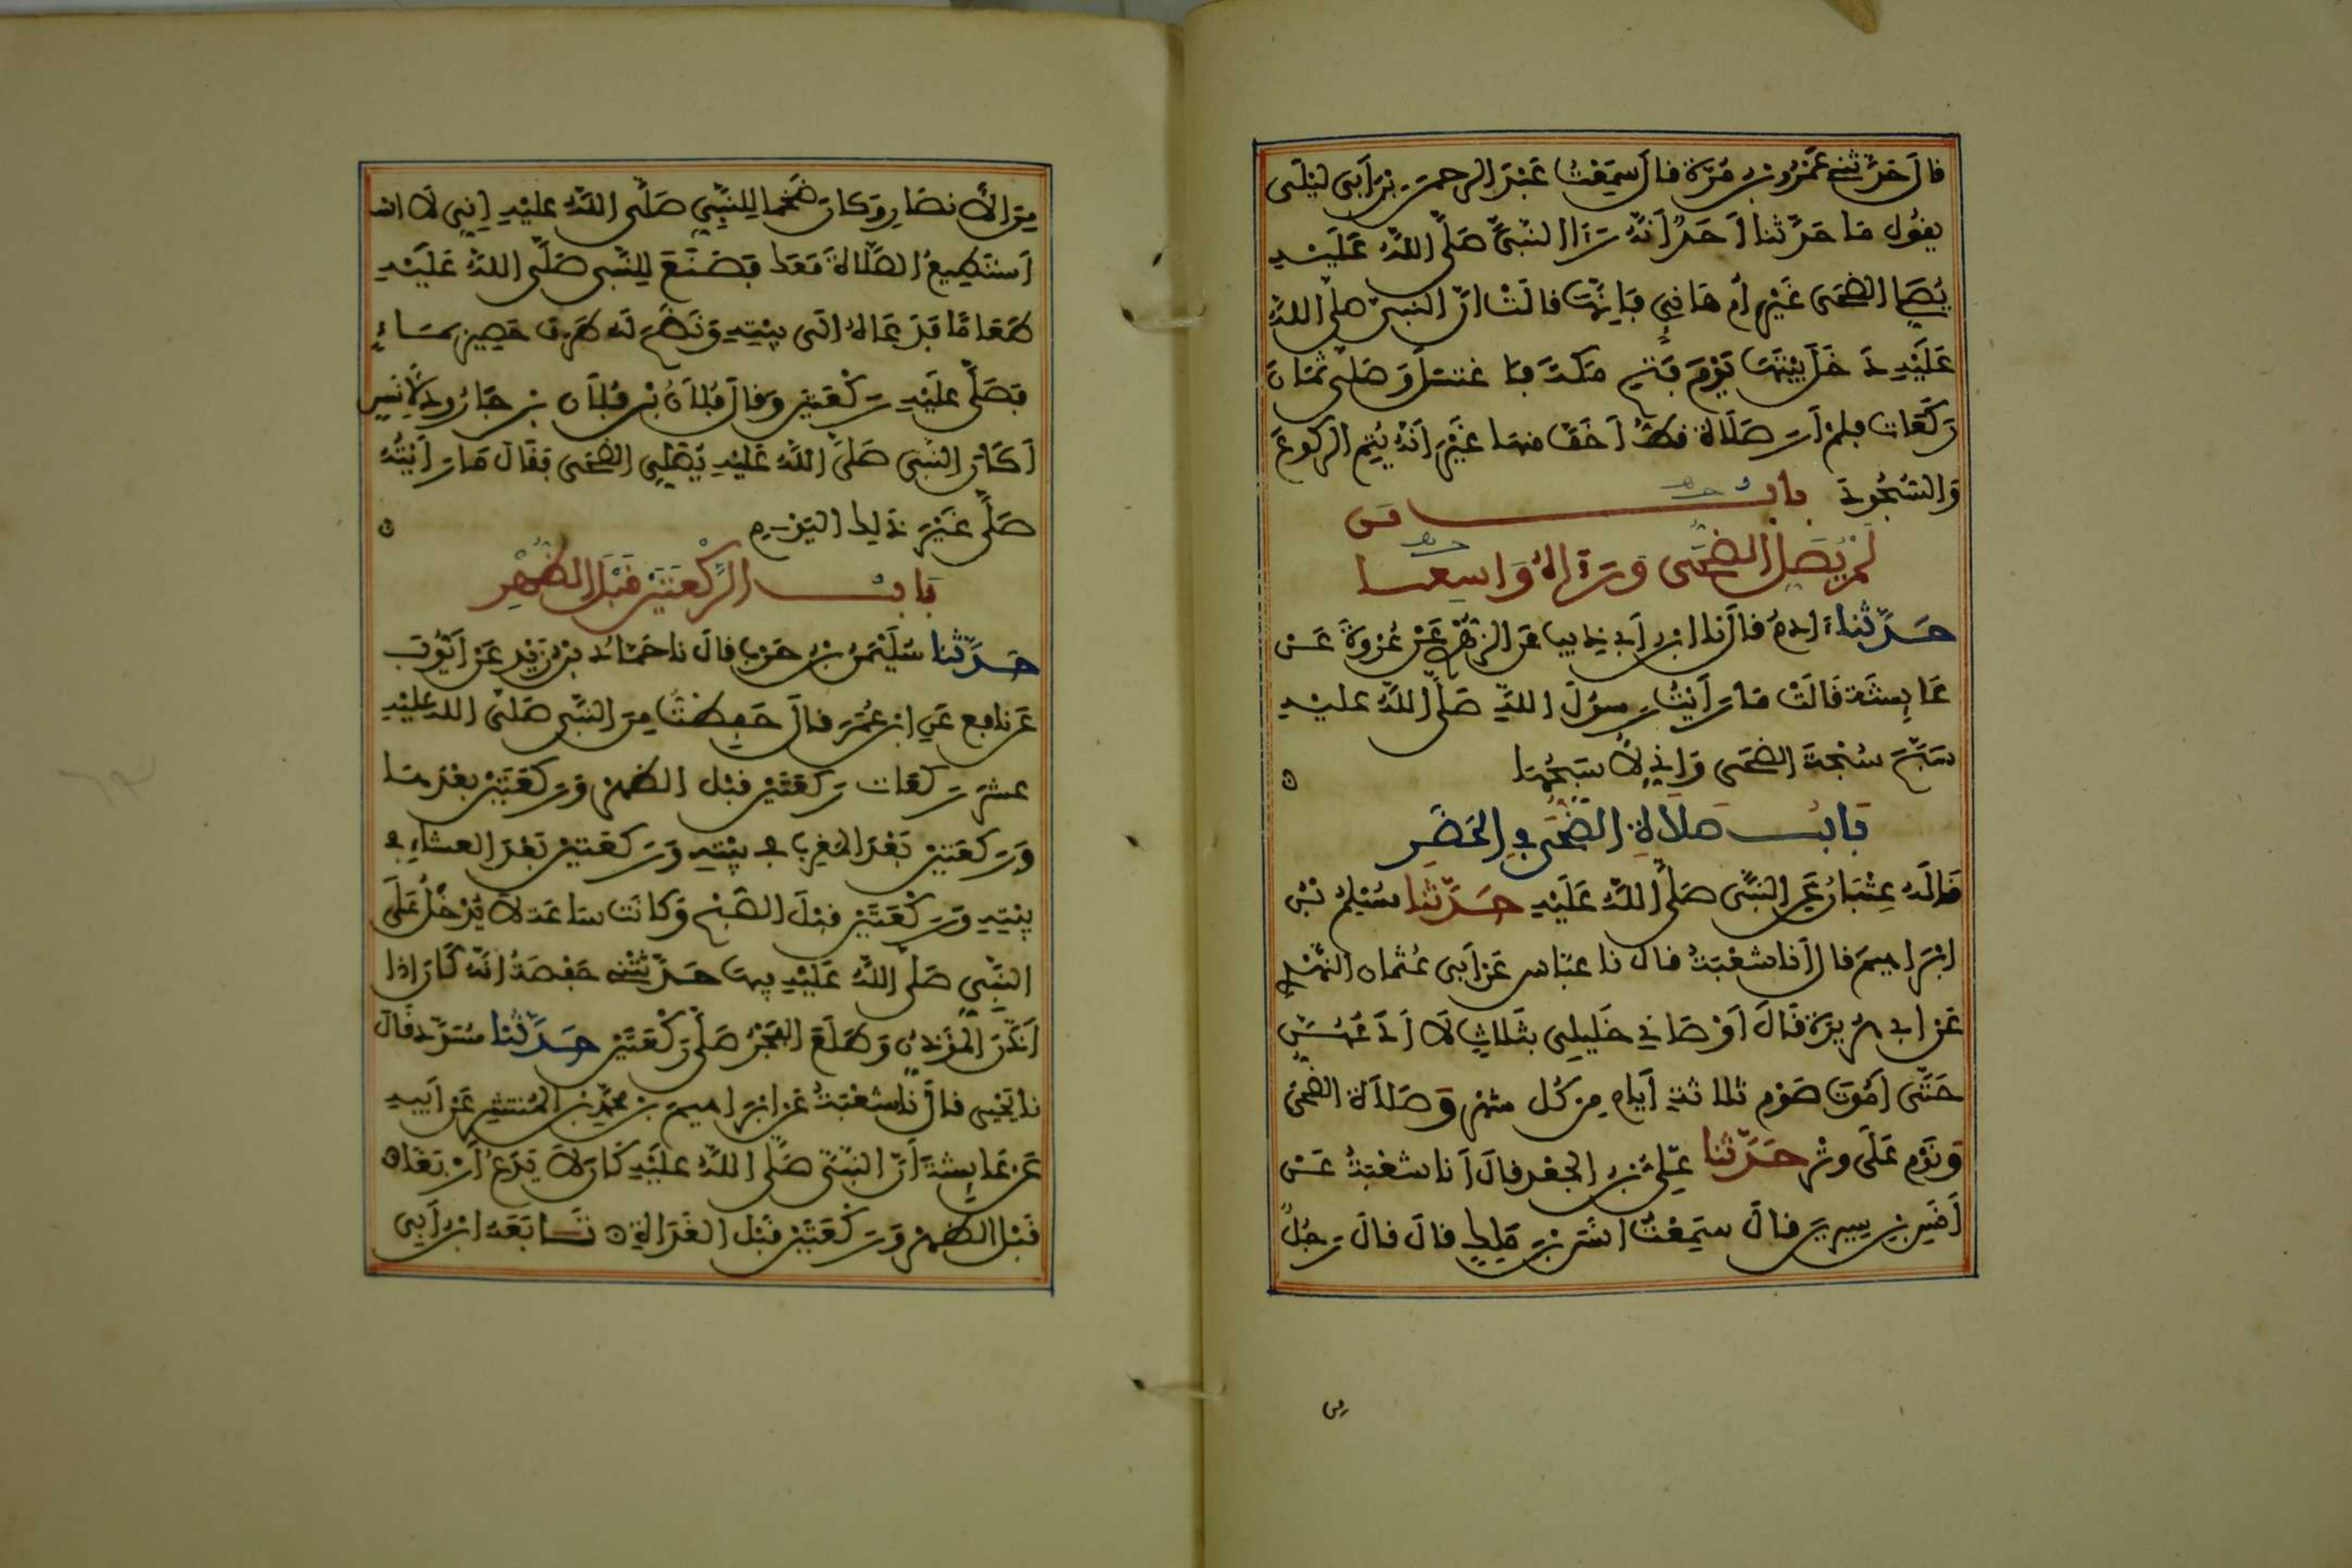 قال حَدَّثَنِي عَمْرُو بن مُرَّةَ قال سَمِعْتُ عَبْدَ الرحمن بْنَ أَبِي لَيْلَى
يقُول مَا حَدَّثنا أَحَدٌ أَنَّهُ رَأَا النَّبِيَّ صَلَّى اللَّهُ عَلَيْهِ
يُصَلِي الضحَى غَيْرَ أم هَانِيءٍ فَإِنَّهَا قَالَتْ انَّ النبيَّ صلى اللهُ
عَلَيْهِ دَخَلَ بَيْتَهَا يَوْمَ فَتْحِ مَكَّةَ فَاغتسلَ وَصَلى ثَمَانَ
رَكَعَات فلمْ أَرَ صَلَاةً قطُّ أَخَفَّ منها غَيْرَ أَنَّهُ يُتِم الركوعَ
وَالسُّجُودَ بابُ مَن
لَمْ يُصَلِ الضُّحَى وَرَءَاهُ وَاسِعا
حَدَّثنا ءادمُ قال نا ابن أبي ذيب عن الزهْري عَنْ عُرْوَةَ عَن
عَايِشَة قَالَتْ مَا رَأَيْتُ رسولَ اللهِ صَلَّى اللَّهُ عليهِ
سَبَّحَ سُبْحَةَ الضحَى وَإِني لَأُسَبِّحُهَا
بَابُ صلَاةِ الضُّحَى فِي الحَضَرِ
قَالَهُ عِتْبَانُ عَن النَّبِي صَلَّى اللَّهُ عَلَيْهِ حَدَّثَنا مُسْلِمُ بْن
ابْرَاهِيمَ قال أَنا شعْبَةُ قال نا عبّاس عَن أَبِي عُثمان النَّهْدي
عَن ابي هُرَيرَة قَالَ أَوْصَانِي خَلِيلِي بثَلاثٍ لَا أَدَعُهُنَّ
حَتَّى أَمُوتَ صَوْمِ ثلاثةِ أَيام مِن كُل شهْر وَصَلَاةِ الضُّحَى
وَنَوْمٍ عَلَى وِتْرٍ حَدَّثنا عَلِيُّ بْن الجعْد قالَ أَنا شعْبَةُ عَنْ
أَنَسِ بْنِ سِيرِينَ قالَ سَمِعْتُ انَس بْن مَلِكٍ قالَ قالَ رَجُلٌ
مِن
مِنَ الأَنصَارِ وَكان ضَخْما لِلنَّبِيِّ صَلَّى اللَّهُ عليْهِ إِنِي لَا
أَستَطِيعُ الصَّلاةَ مَعَكَ فَصَنَعَ لِلنَّبِي صَلَّى اللهُ عَلَيْهِ
طعَامًا فَدَعَاهُ الَى بيْتِهِ وَنَضَحَ لَهُ طَرفَ حَصِيرٍ بمَاءٍ
فَصَلَّى عَلَيْهِ رَكْعَتَيْنِ وَقالَ فُلَانُ بْن فُلَان بْن جَارُود لأَنَسٍ
أَكَانَ النَّبِي صَلَّى اللَّهُ عَلَيْهِ يُصَلِي الضحَى فَقَالَ مَا رَأَيْتُهُ
صَلَّى غَيْرَ ذَلِكَ اليَوْمِ
بَابُ الرَّكْعَتَيْنِ قَبْلَ الظُّهْرِ
حَدَّثَنَا سُلَيْمَنُ بْن حَرْب قالَ نا حَمَّادُ بْن زَيْدٍ عَنْ أَيُّوبَ
عَن نافِع عَنِ ابْن عُمَرَ قالَ حَفِظْتُ مِنَ النَّبِي صَلى اللهُ عليْهِ
عشرَ رَكعَات رَكعَتَيْن قَبْلَ الظهْر وَرَكعَتَيْن بعْدَهَا
وَرَكعَتَيْنِ بَعْدَ المغْرِب في بيْتِهِ وَرَكعَتَيْن بَعْدَ العشَاءِ في
بَيْتِهِ وَرَكْعَتَيْن قَبْلَ الصُّبْح وَكانَت سَاعَةً لا يُدْخَلُ عَلَى
النَّبِيِّ صَلَّى اللَّهُ عَلَيْهِ فِيهَا حَدَّثَتْنِي حَفْصَةُ انَّهُ كَانَ اذا
أَذَّنَ المُؤَذِّنُ وَطَلَعَ الفَجْرُ صَلَّى رَكْعَتَيْنِ حَدَّثَنَا مُسَدَّد قَالَ
نا يَحْيَى قالَ نا شعْبَةُ عَن ابْرَاهِيمَ بْن مُحَمَّدِ بْن المُنتَشِر عَنْ أَبِيهِ
عَن عَايِشَةَ أَنَّ النَّبِيَّ صَلَّى اللَّهُ عَلَيْهِ كَانَ لَا يَدَعُ أَرْبَعًا
قَبْلَ الظهْر وَرَكْعَتَيْنِ قَبْلَ الغَدَاةِ تَابَعَهُ ابْن أَبِي